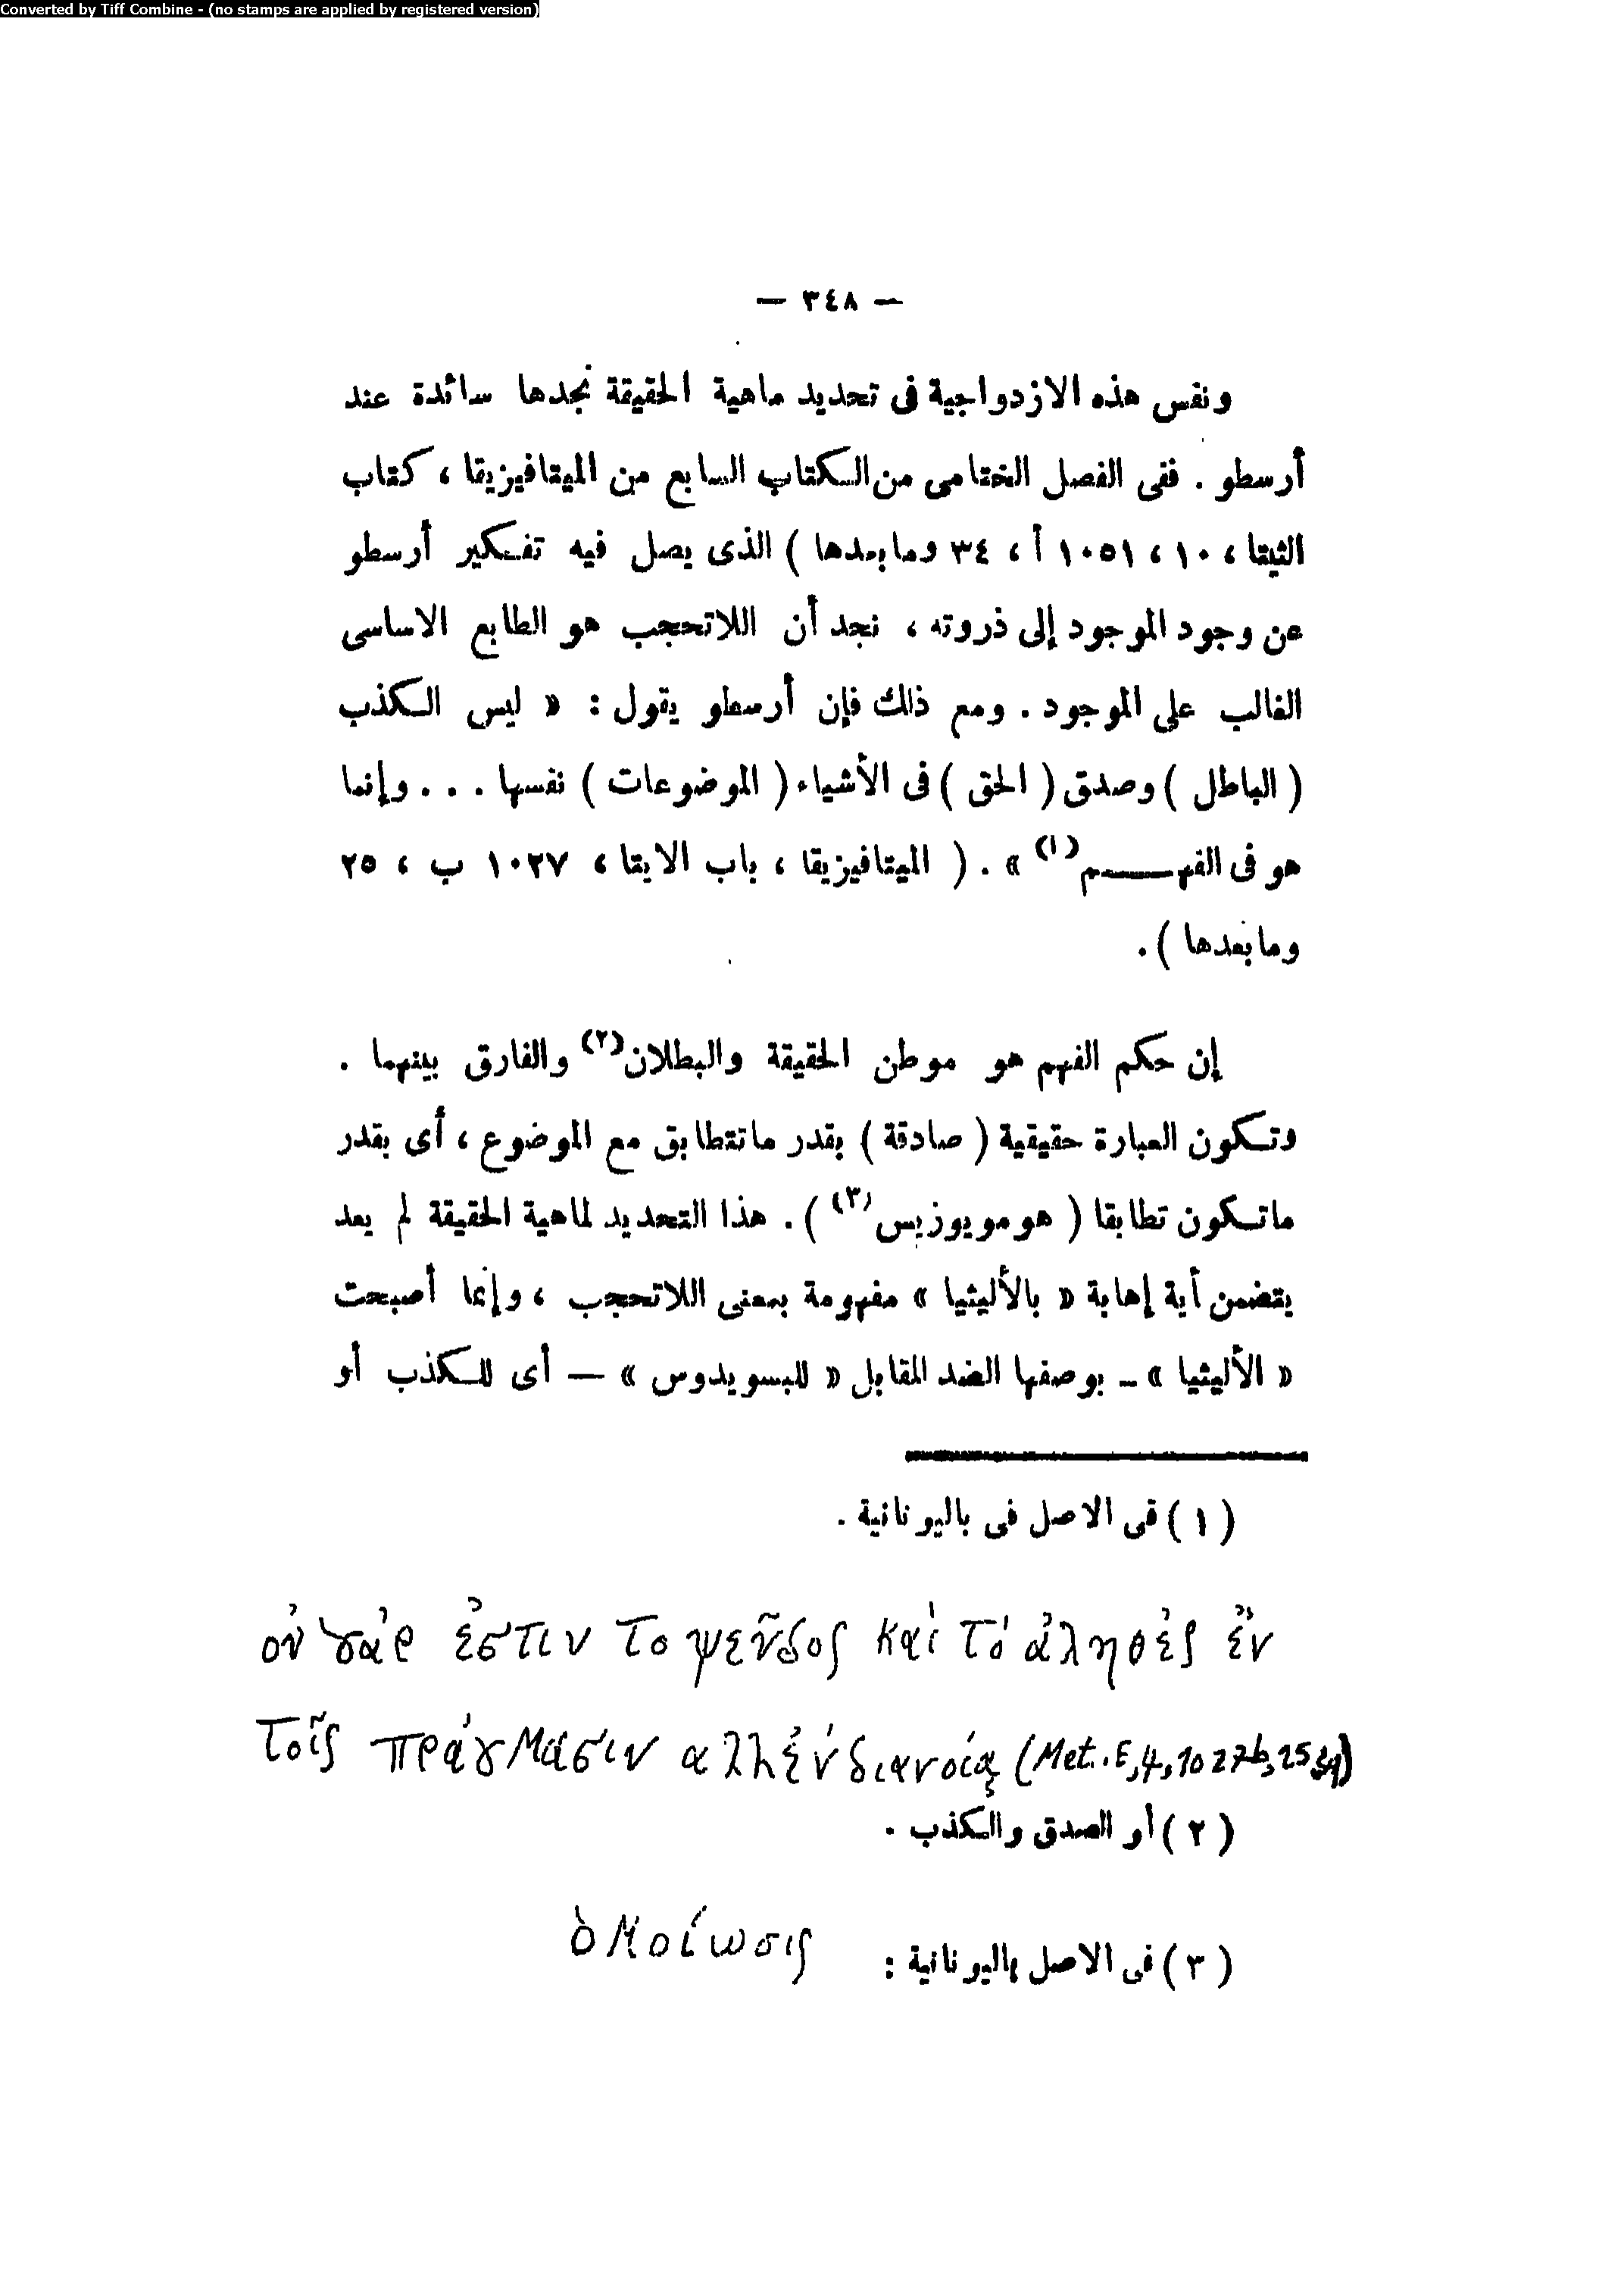 Converted by Tiff Combine - (no stamps are applied by registered version)
— ٣٤٨ —
ونفس هذه الازدواجية فى تحديد ماهية الحقيقة نجدها سائدة عند
أرسطو . ففى الفصل الختامى من الكتاب السابع من الميتافيزيقا ، كتاب
الثيتا ، ١٠ ، ١٠٥١ أ ، ٣٤ وما بعدها ) الذى يصل فيه تفكير أرسطو
عن وجود الموجود إلى ذروته ، نجد أن اللاتحجب هو الطابع الاساسى
الغالب على الموجود . ومع ذلك فإن أرسطو يقول : « ليس الكذب
( الباطل ) وصدق ( الحق ) فى الأشياء ( الموضوعات ) نفسها . . . وإنما
هو فى الفهم (١) » . ( الميتافيزيقا ، باب الايتا ، ١٠٢٧ ب ، ٢٥
وما بعدها ) .
إن حكم الفهم هو موطن الحقيقة والبطلان (٢) والفارق بينهما .
وتكون العبارة حقيقية ( صادقة ) بقدر ما تتطابق مع الموضوع ، أى بقدر
ما تكون تطابقا ( هومويوزيس (٣) ) . هذا التحديد لماهية الحقيقة لم يعد
يتضمن أية إهابة « بالأليثيا » مفهومة بمعنى اللاتحجب ، وإنما أصبحت
« الأليثيا » - بوصفها الضد المقابل « للبسويدوس » — أى للكذب أو
( ١ ) فى الاصل فى باليونانية .
οὐ γάρ ἐστιν το ψεῦδος καὶ τό ἀληθές ἐν
τοῖς πράγμασιν αλλ' ἐν διανοίᾳ (Met. E, 4, 1027b, 25 sq)
( ٢ ) أو الصدق والكذب .
( ٣ ) فى الاصل باليونانية : ὁμοίωσις